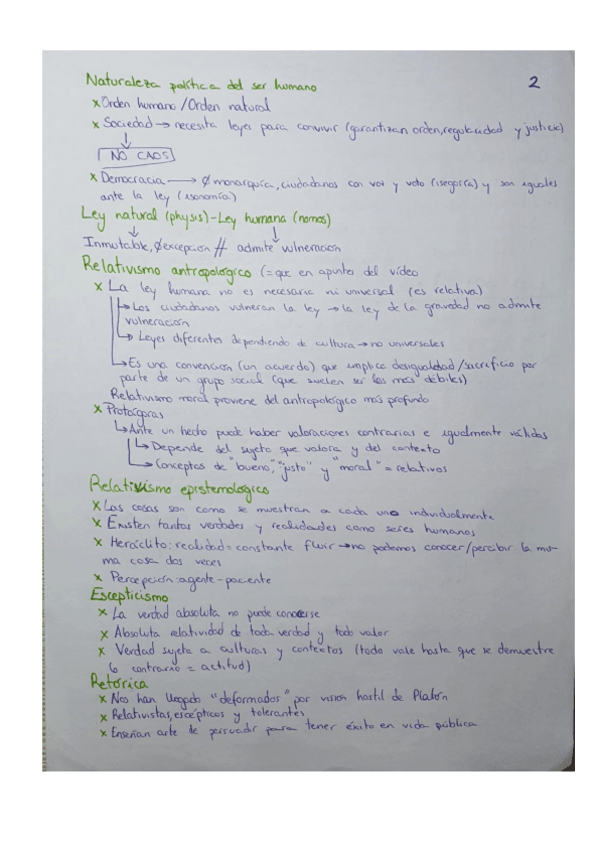 Naturaleza política del ser humano 2
x Orden humano / Orden natural
x Sociedad → necesita leyes para convivir (garantizan orden, regularidad y justicia)
NO CAOS
x Democracia → Ø monarquía, ciudadanos con voz y voto (isegoría) y son iguales
ante la ley (isonomía)
Ley natural (physis) - Ley humana (nomos)
Inmutable, Ø excepción // admite vulneración
Relativismo antropológico (= que en apuntes del vídeo
x La ley humana no es necesaria ni universal (es relativa)
↳ Los ciudadanos vulneran la ley → la ley de la gravedad no admite
vulneración
↳ Leyes diferentes dependiendo de cultura → no universales
↳ Es una convención (un acuerdo) que implica desigualdad/sacrificio por
parte de un grupo social (que suelen ser los más débiles)
Relativismo moral proviene del antropológico más profundo
x Protágoras
↳ Ante un hecho puede haber valoraciones contrarias e igualmente válidas
↳ Depende del sujeto que valora y del contexto
↳ Conceptos de "bueno", "justo" y "moral" = relativos
Relativismo epistemológico
x Las cosas son como se muestran a cada uno individualmente
x Existen tantas verdades y realidades como seres humanos
x Heráclito: realidad = constante fluir → no podemos conocer/percibir la mis-
ma cosa dos veces
x Percepción: agente - paciente
Escepticismo
x La verdad absoluta no puede conocerse
x Absoluta relatividad de toda verdad y todo valor
x Verdad sujeta a culturas y contextos (todo vale hasta que se demuestre
lo contrario = actitud)
Retórica
x Nos han llegado "deformados" por visión hostil de Platón
x Relativistas, escépticos y tolerantes
x Enseñan arte de persuadir para tener éxito en vida pública